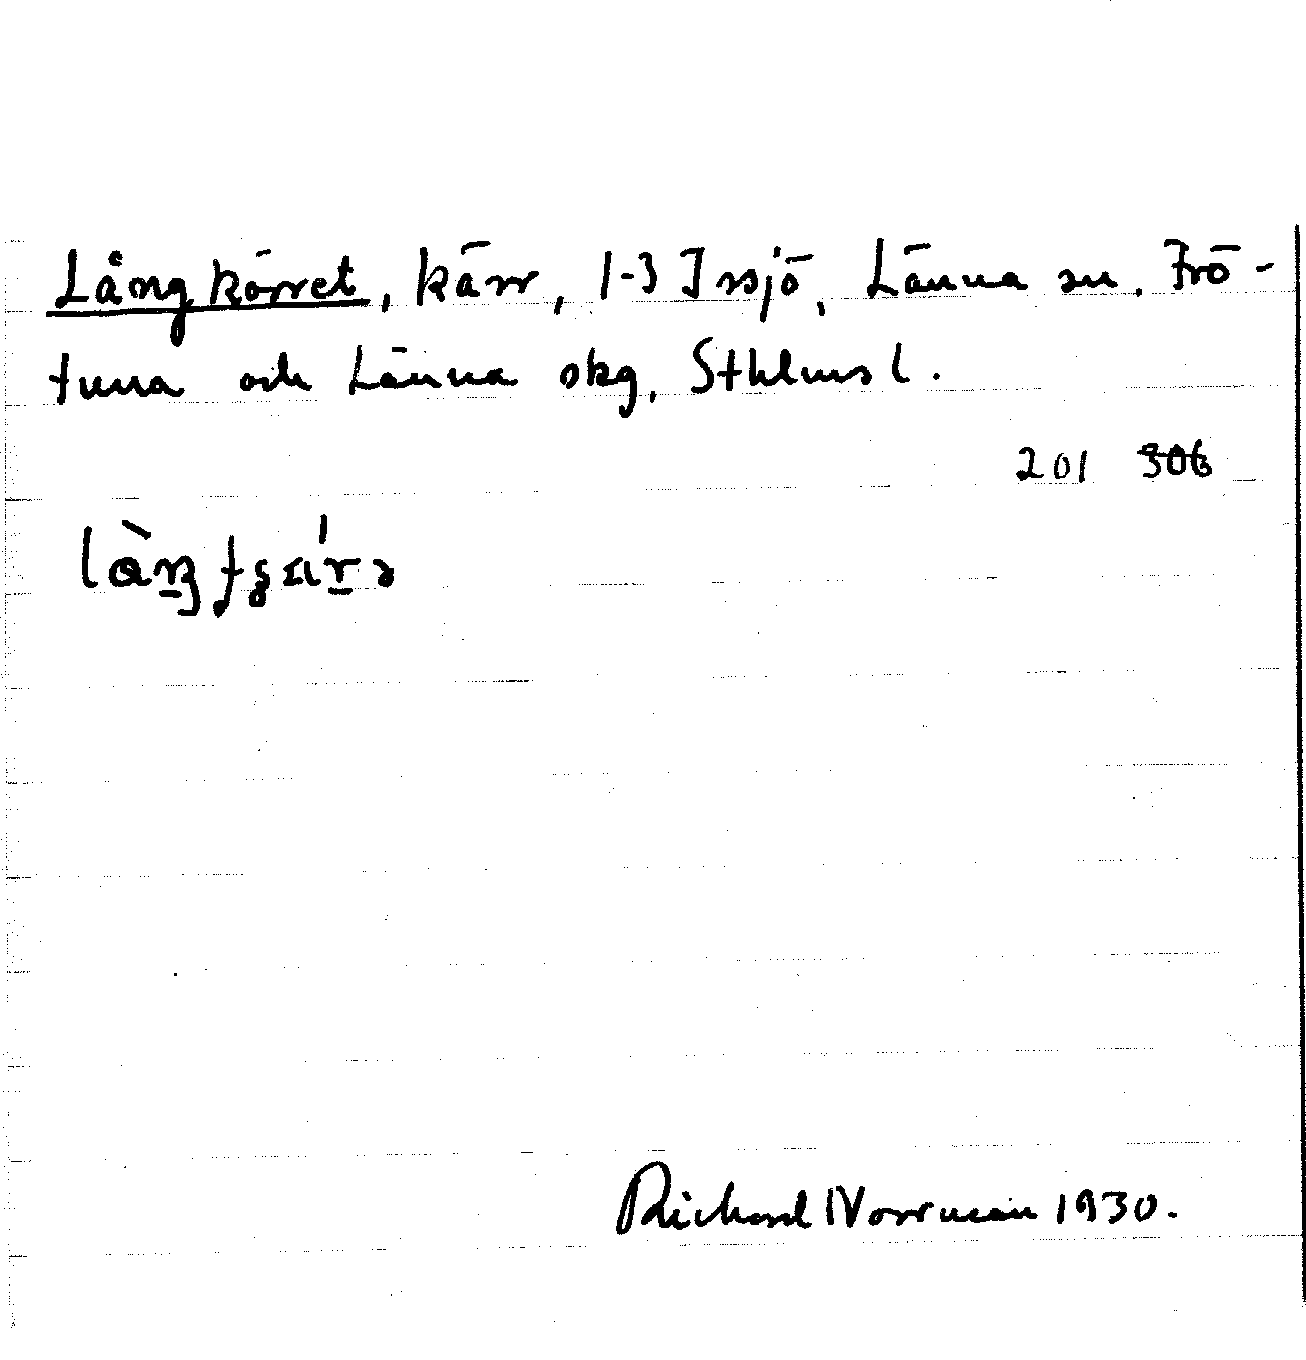 Långkärret, kärr, 1-3 Issjö, Länna sn. Frö-
tuna och Länna skg, Sthlms l.
201 306
Richard Norrman 1930.